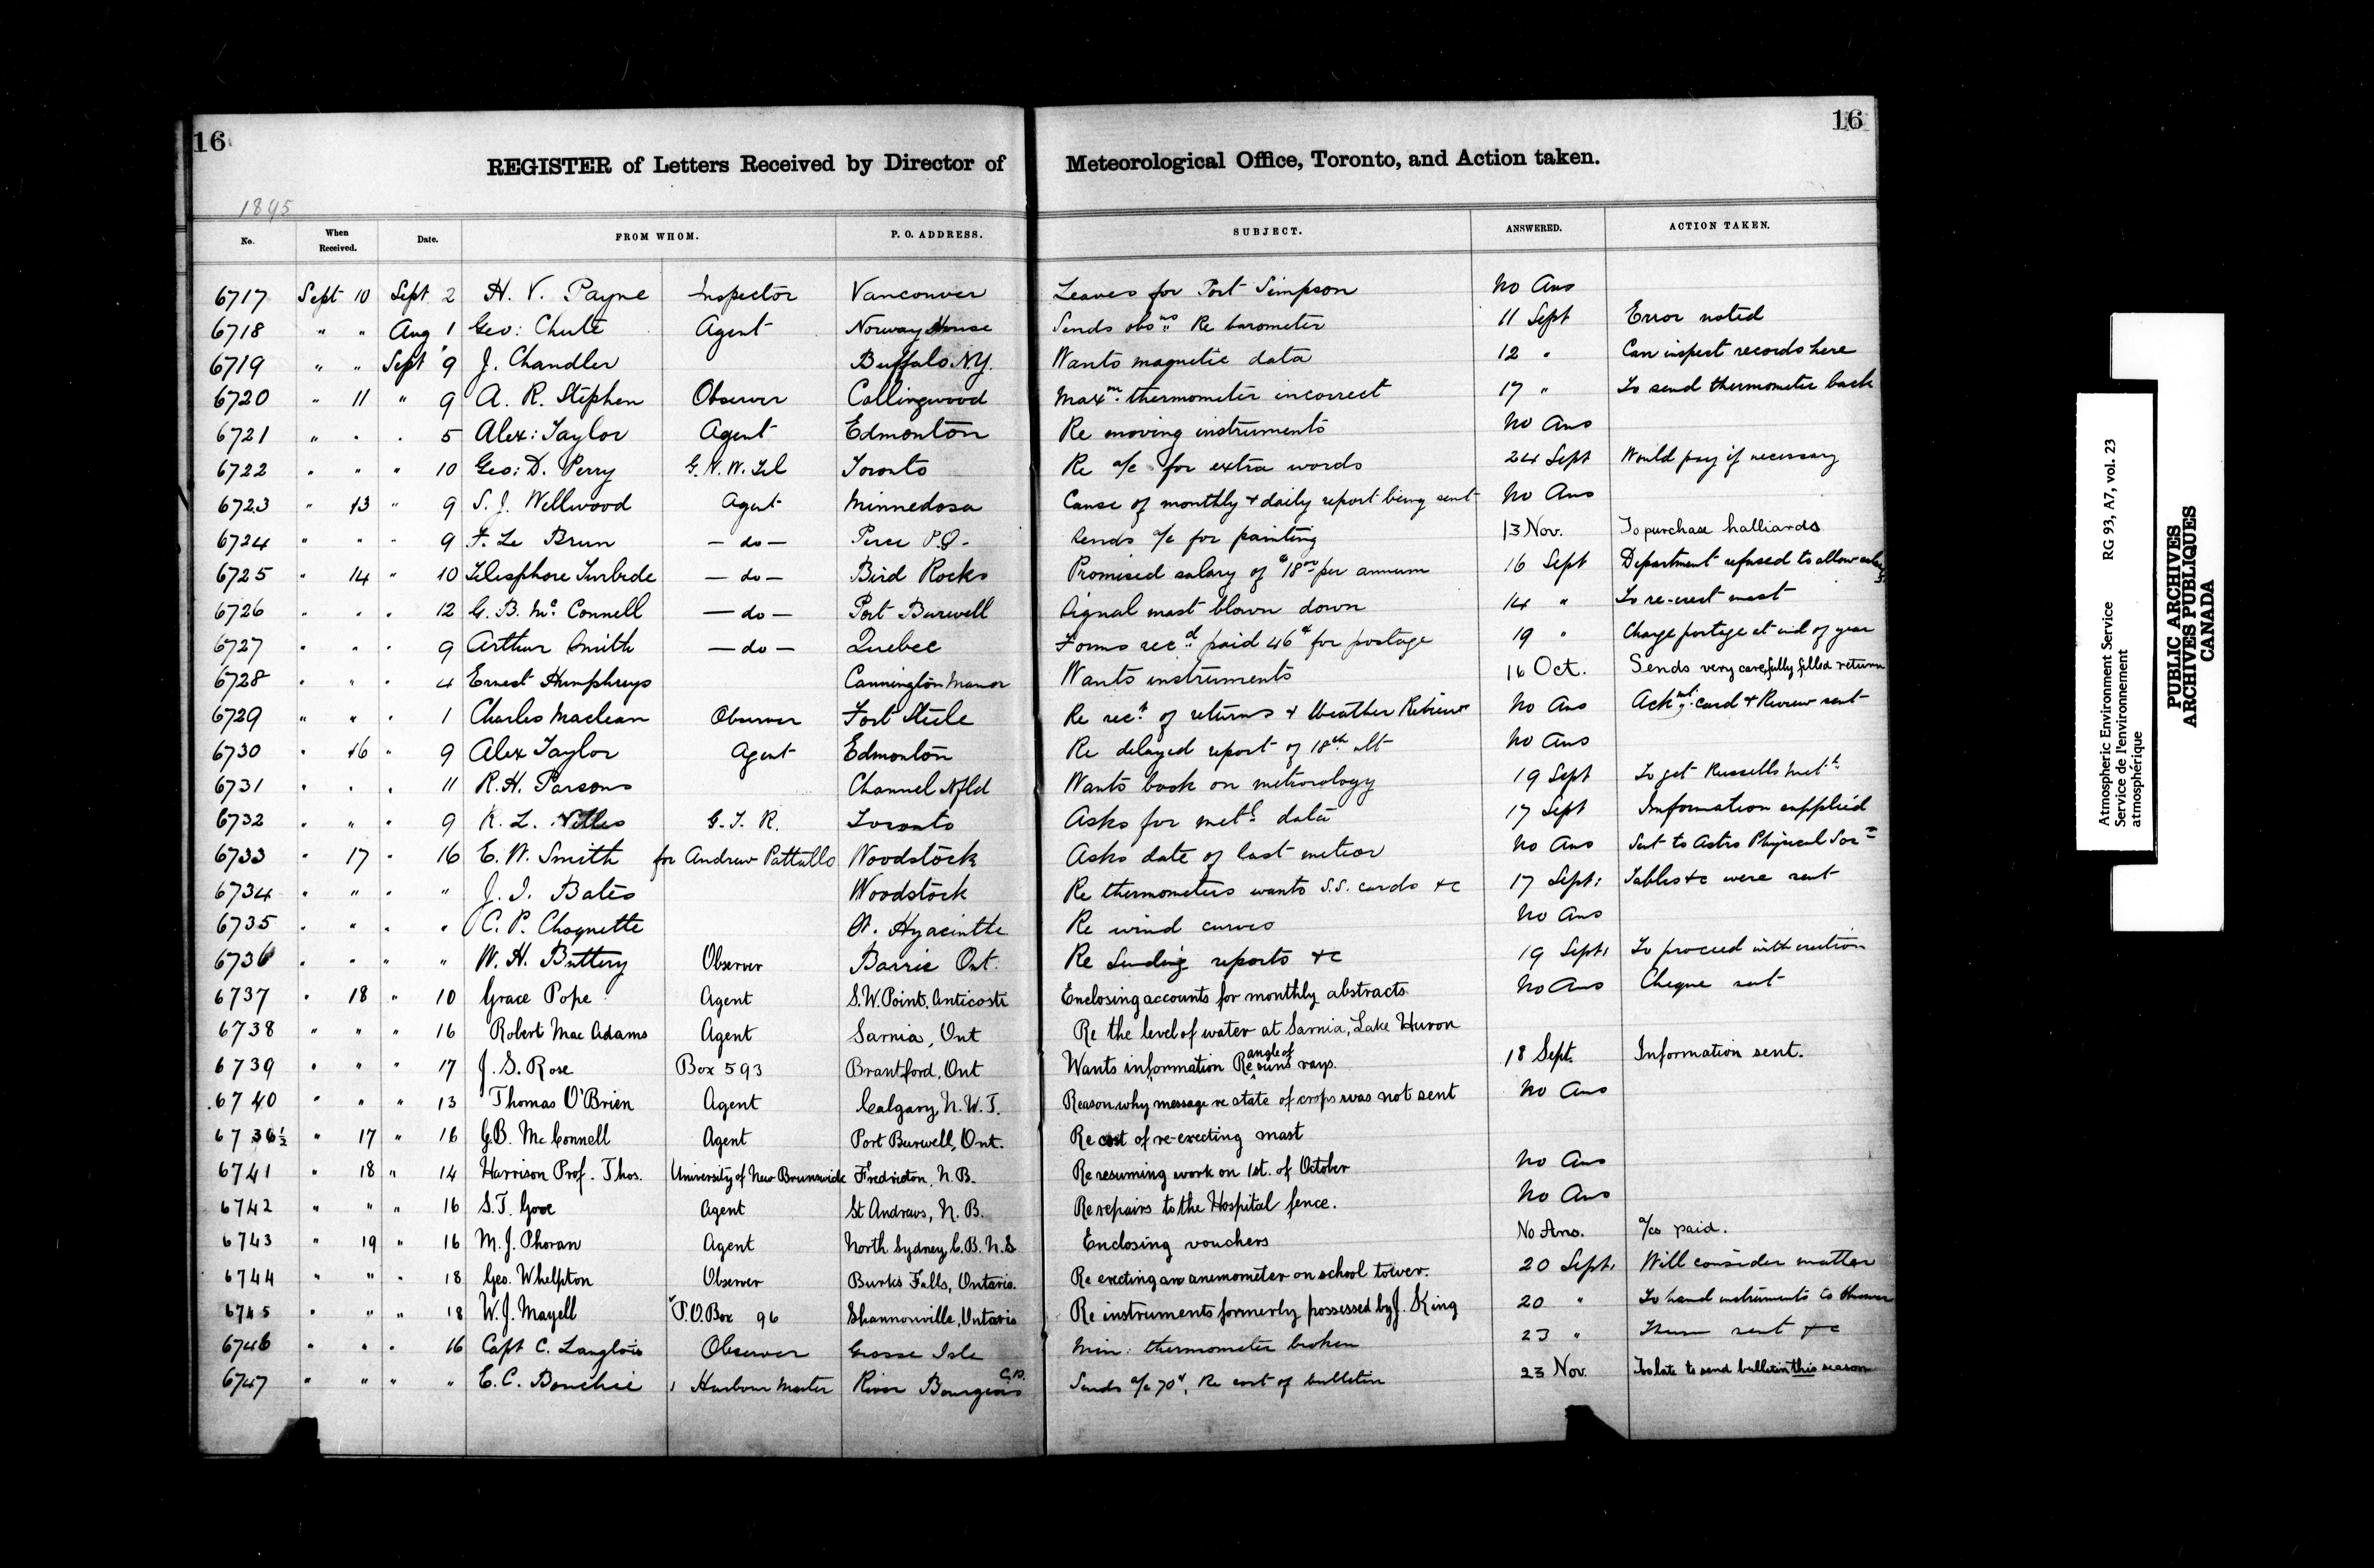 16
16
REGISTER of Letters Received by Director of Meteorological Office, Toronto, and Action taken.
1895
No. When Received. Date. FROM WHOM. P. O. ADDRESS. SUBJECT. ANSWERED. ACTION TAKEN.
6717 Sept 10 Sept 2 H. V. Payne Inspector Vancouver Leaves for Port Simpson No Ans
6718 " " Aug 1 Geo: Chute Agent Norway House Sends obsns Re barometer 11 Sept Error noted
6719 " " Sept 9 J. Chandler Buffalo N.Y. Wants magnetic data 12 " Can inspect records here
6720 " 11 " 9 A. R. Stephen Observer Collingwood Maxm thermometer incorrect 17 " To send thermometer back
6721 " " " 5 Alex: Taylor Agent Edmonton Re moving instruments No Ans
6722 " " " 10 Geo: D. Perry G. N. W. Tel Toronto Re a/c for extra words 24 Sept Would pay if necessary
6723 " 13 " 9 S. J. Wellwood Agent Minnedosa Cause of monthly & daily report being sent No Ans
6724 " " " 9 F. Le Brun — do — Perce P.Q. Sends a/c for painting 13 Nov. To purchase halliards
6725 " 14 " 10 Telesphore Turbide — do — Bird Rocks Promised salary of $18 00 per annum 16 Sept Department refused to allow
6726 " " " 12 G. B. Mc Connell — do — Port Burwell Signal mast blown down 14 " To re-erect mast
6727 " " " 9 Arthur Smith — do — Quebec Forms recd paid 46c for postage 19 " Charge postage at end of year
6728 " " " 4 Ernest Humphreys Cannington Manor Wants instruments 16 Oct. Sends very carefully filled return
6729 " " " 1 Charles Maclean Observer Fort Steele Re rect of returns & Weather Review No Ans Ackmt card & Review sent
6730 " 16 " 9 Alex Taylor Agent Edmonton Re delayed report of 18th ult No Ans
6731 " " " 11 R. H. Parsons Channel Nfld Wants book on meteorology 19 Sept To get Russells
6732 " " " 9 R. L. Nelles G. T. R. Toronto Asks for metl data 17 Sept Information supplied
6733 " 17 " 16 E. W. Smith for Andrew Pattullo Woodstock Asks date of last meteor No Ans Sent to Astro Physical Socy
6734 " " " " J. I. Bates Woodstock Re thermometers wants S.S. cards &c 17 Sept: Tables &c were sent
6735 " " " " C. P. Choquette St. Hyacinthe Re wind curves No Ans
6736 " " " " W. H. Buttery Observer Barrie Ont. Re Sending reports &c 19 Sept: To proceed with erection
6737 " 18 " 10 Grace Pope Agent S.W. Point, Anticosti Enclosing accounts for monthly abstracts. No Ans Cheque sent
6738 " " " 16 Robert Mac Adams Agent Sarnia, Ont Re the level of water at Sarnia, Lake Huron
6739 " " " 17 J. S. Rose Box 593 Brantford, Ont Wants information Re angle of suns rays. 18 Sept. Information sent.
6740 " " " 13 Thomas O'Brien Agent Calgary, N.W.T. Reason why message re state of crops was not sent No Ans
6736½ " 17 " 16 G.B. McConnell Agent Port Burwell, Ont. Re cost of re-erecting mast
6741 " 18 " 14 Harrison Prof. Thos. University of New Brunswick Fredricton, N.B. Re resuming work on 1st. of October No Ans
6742 " " " 16 S.T. Gove Agent St Andrews, N.B. Re repairs to the Hospital fence. No Ans
6743 " 19 " 16 M.J. Phoran Agent North Sydney, C.B. N.S Enclosing vouchers No Ans. a/cs paid.
6744 " " " 18 Geo. Whelpton Observer Burks Falls, Ontario. Re erecting an anemometer on school tower. 20 Sept. Will consider matter
6745 " " " 18 W.J. Mayell P.O. Box 96 Shannonville, Ontario Re instruments formerly possessed by J. King 20 " To hand instruments to
6746 " " " 16 Capt C. Langlois Observer Grosse Isle Min: thermometer broken 23 " Therm sent &c
6747 " " " " E. C. Bouchie Harbour Master River Bourgeois C.B. Sends a/c 70c, Re cost of bulletin 23 Nov. Too late to send bulletin this season
Atmospheric Environment Service RG 93, A7, vol. 23
Service de l'environnement
atmosphérique
PUBLIC ARCHIVES
ARCHIVES PUBLIQUES
CANADA